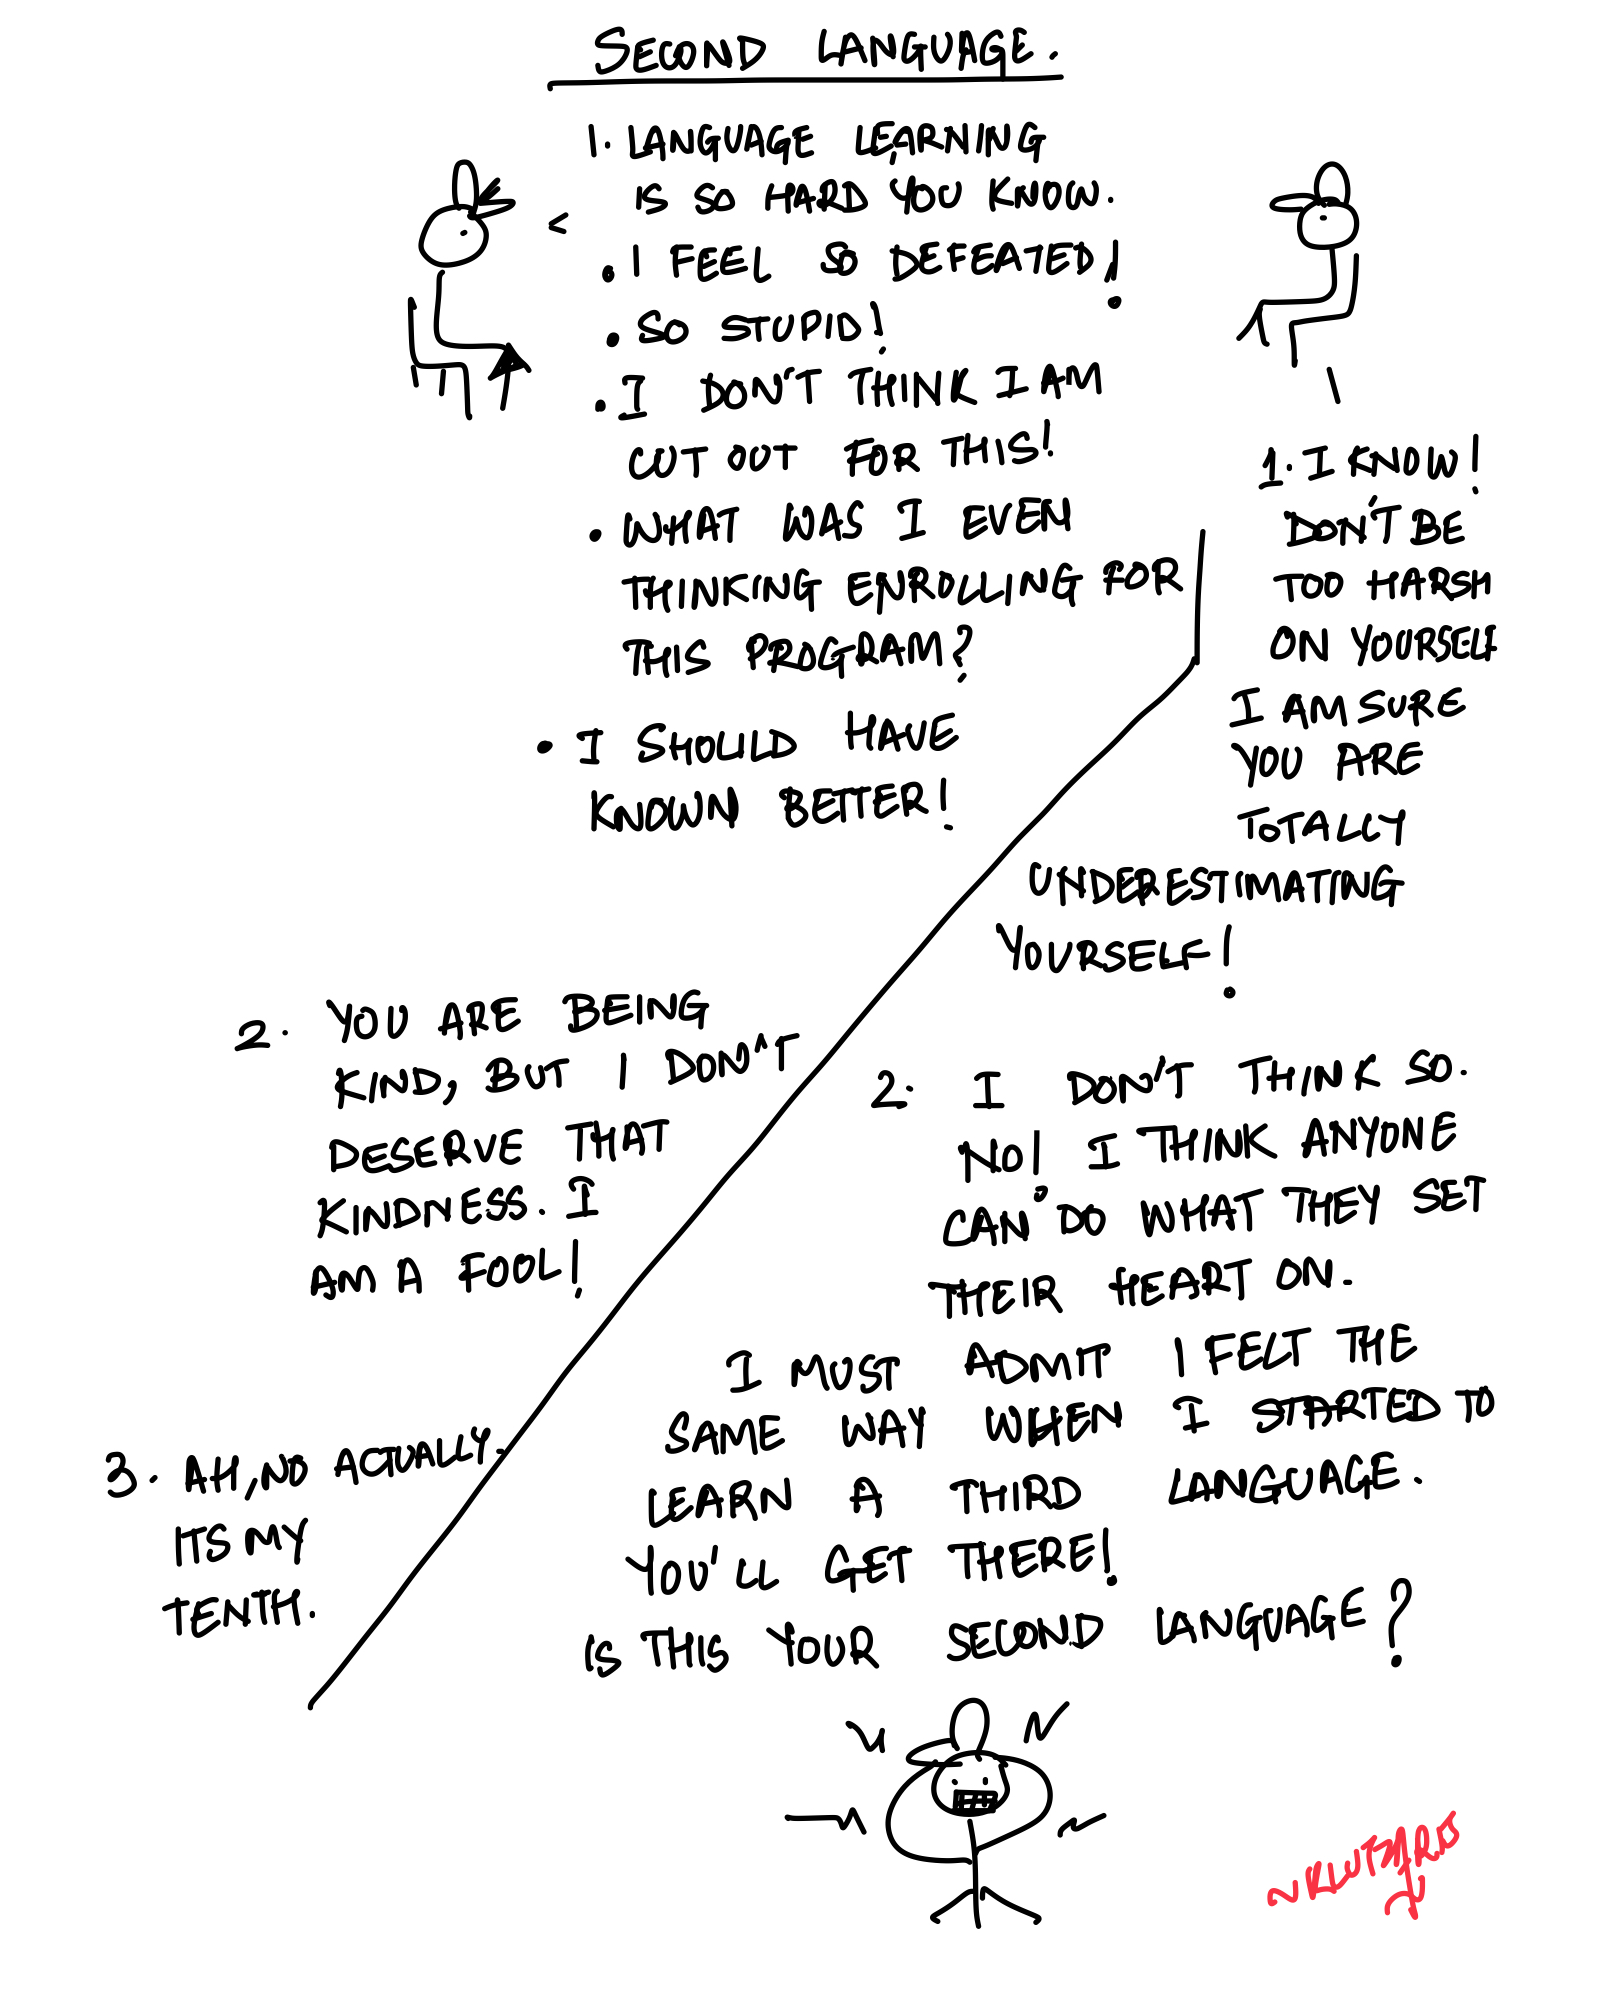 SECOND LANGUAGE.
1. LANGUAGE LEARNING
IS SO HARD YOU KNOW.
• I FEEL SO DEFEATED!
• SO STUPID!
• I DON'T THINK I AM
CUT OUT FOR THIS!
• WHAT WAS I EVEN
THINKING ENROLLING FOR
THIS PROGRAM?
• I SHOULD HAVE
KNOWN BETTER!
1. I KNOW!
DON'T BE
TOO HARSH
ON YOURSELF
I AM SURE
YOU ARE
TOTALLY
UNDERESTIMATING
YOURSELF!
2. YOU ARE BEING
KIND, BUT I DON'T
DESERVE THAT
KINDNESS. I
AM A FOOL!
2. I DON'T THINK SO.
NO! I THINK ANYONE
CAN DO WHAT THEY SET
THEIR HEART ON.
I MUST ADMIT I FELT THE
SAME WAY WHEN I STARTED TO
LEARN A THIRD LANGUAGE.
YOU'LL GET THERE!
IS THIS YOUR SECOND LANGUAGE?
3. AH, NO ACTUALLY.
ITS MY
TENTH.